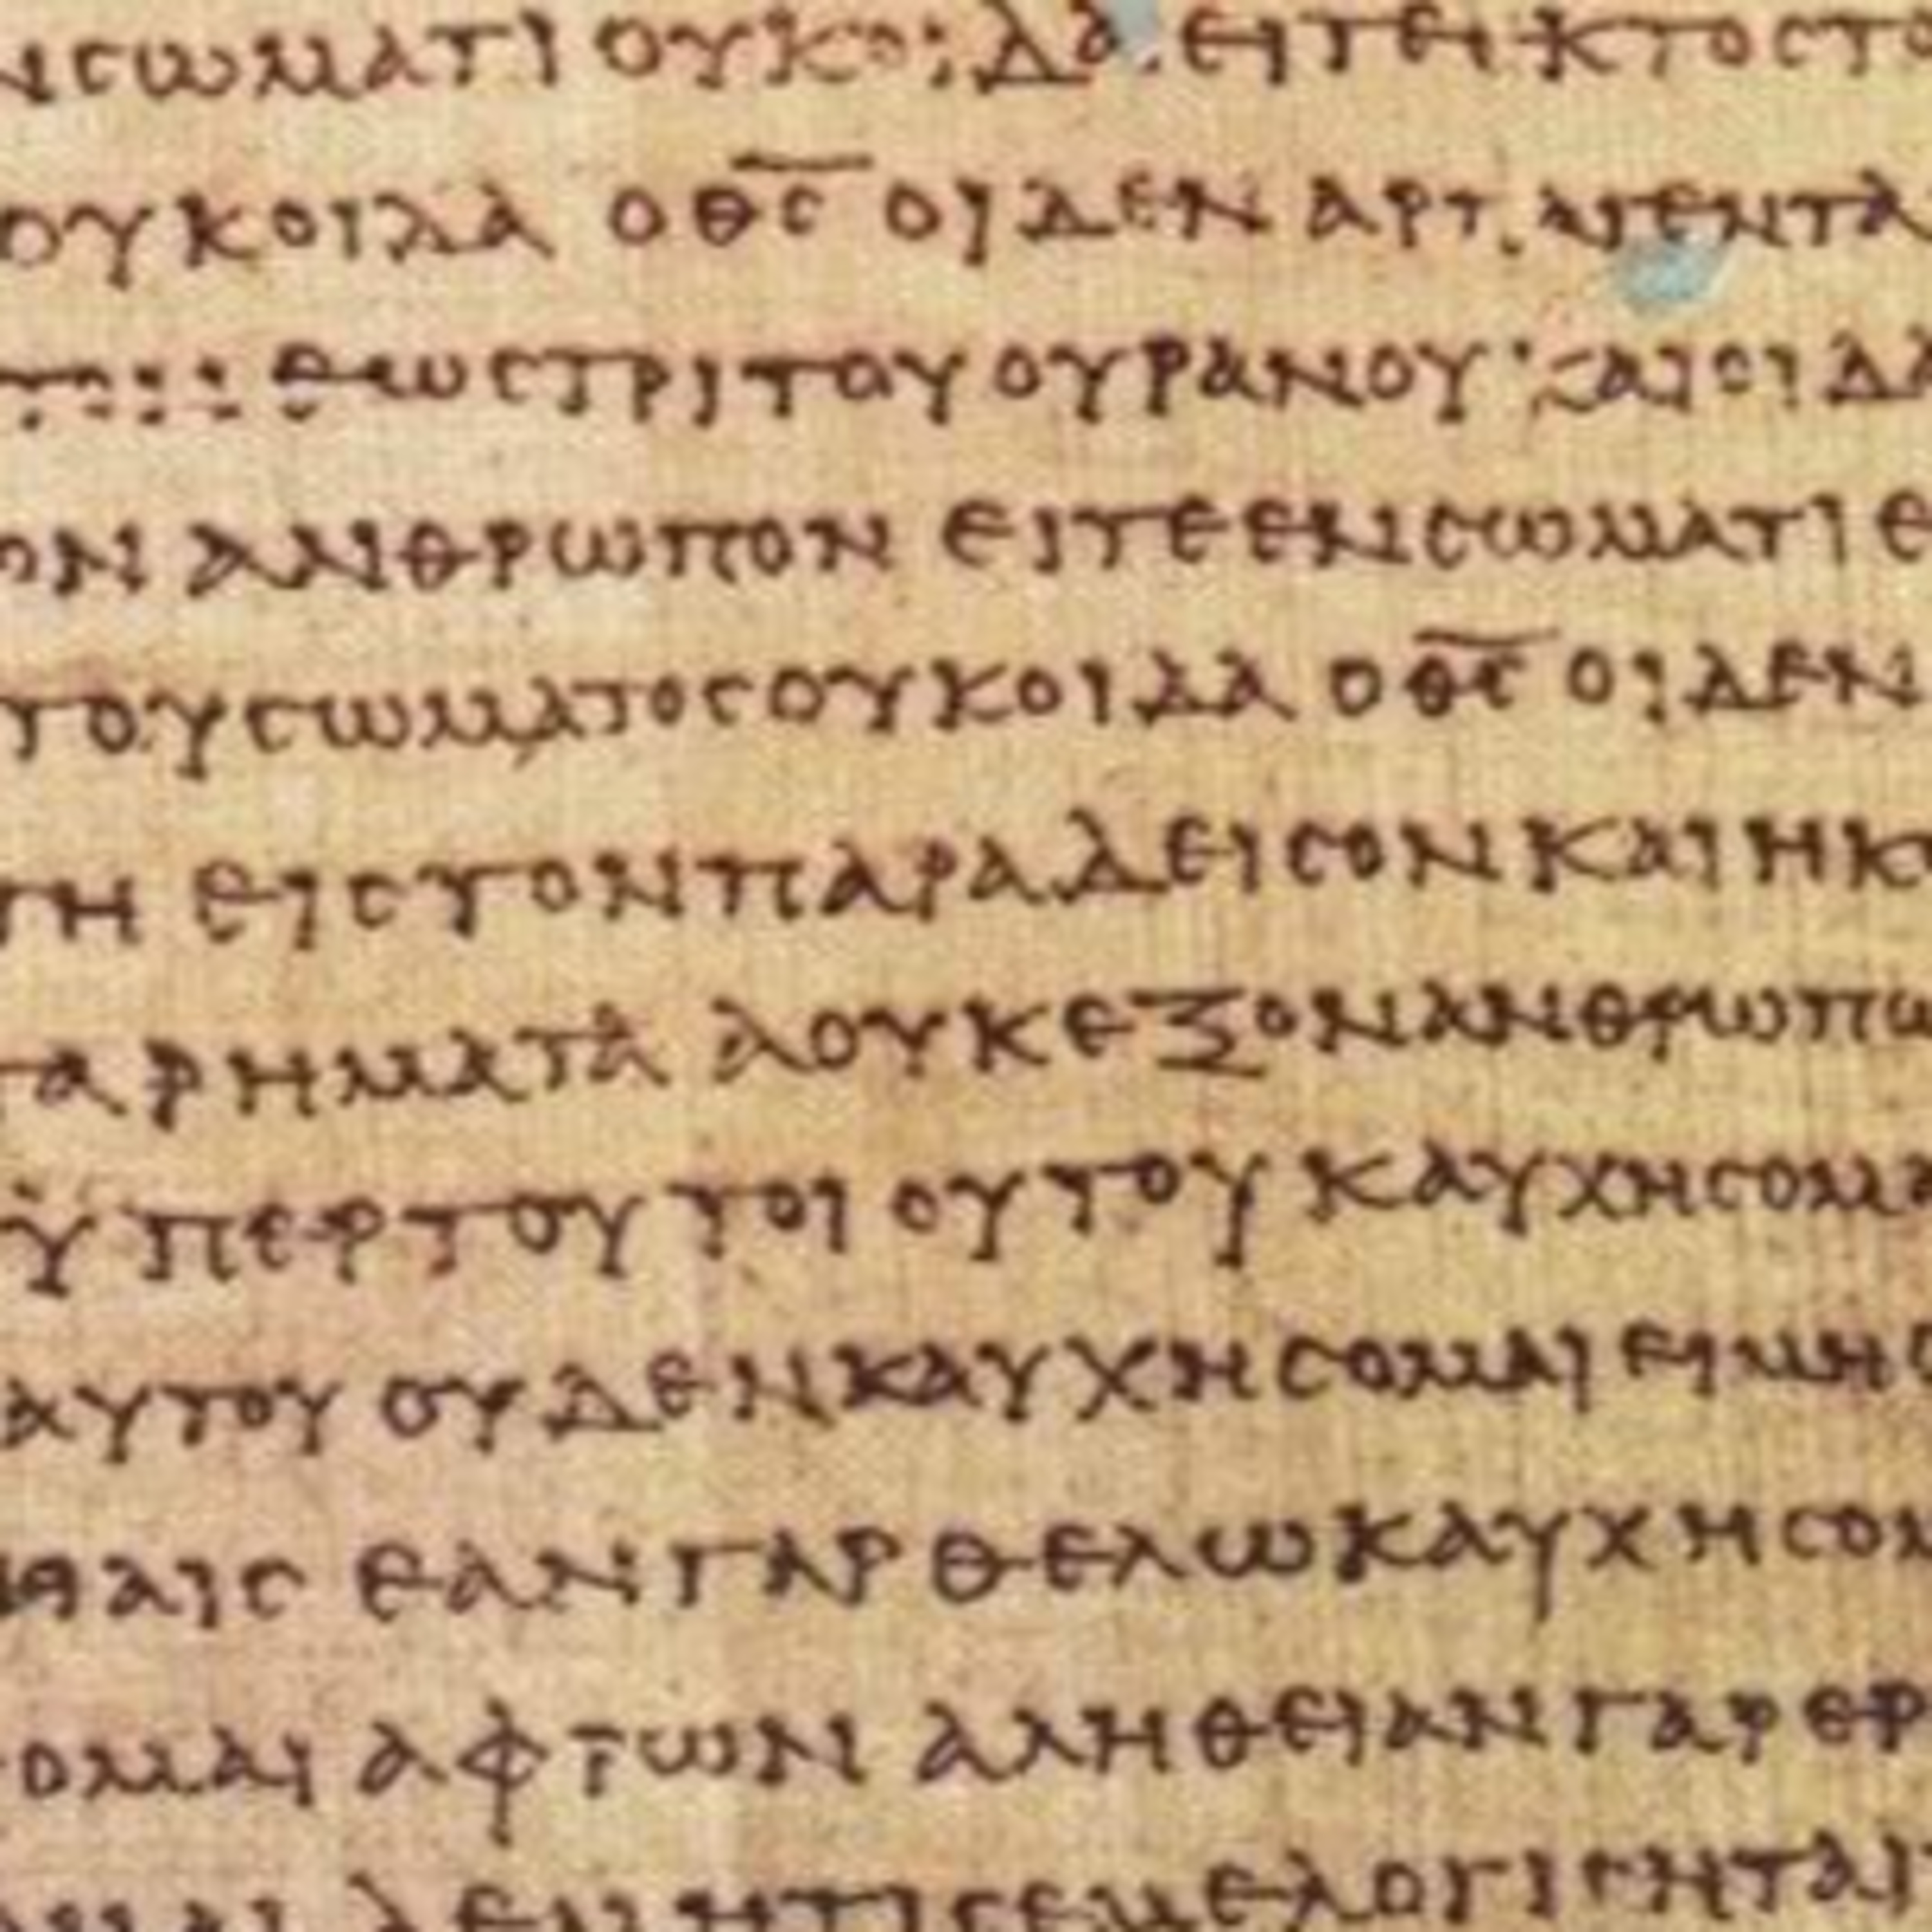 ΝСΩΜΑΤΙ ΟΥΚΟΙΔΑ ΕΙΤΕ ΕΚΤΟСΤΟ
ΟΥΚΟΙΔΑ Ο Θ̅С̅ ΟΙΔΕΝ ΑΡΠΑΓΕΝΤΑ
ΕΩСΤΡΙΤΟΥ ΟΥΡΑΝΟΥ ΚΑΙΟΙΔΑ
ΟΝ ΑΝΘΡΩΠΟΝ ΕΙΤΕΕΝСΩΜΑΤΙ Ε
ΤΟΥСΩΜΑΤΟСΟΥΚΟΙΔΑ Ο Θ̅С̅ ΟΙΔΕΝ
ΓΗ ΕΙСΤΟΝΠΑΡΑΔΕΙСΟΝΚΑΙΗΚ
ΤΑΡΗΜΑΤΑ ΑΟΥΚΕΞΟΝΑΝΘΡΩΠΩ
ΫΠΕΡΤΟΥΤΟΙΟΥΤΟΥ ΚΑΥΧΗСΟΜΑ
ΑΥΤΟΥ ΟΥΔΕΝΚΑΥΧΗСΟΜΑΙ ΕΙΜΗ
ΙΑΙС ΕΑΝΓΑΡ ΘΕΛΩΚΑΥΧΗСΟΜ
ΟΜΑΙ ΑΦΡΩΝ ΑΛΗΘΕΙΑΝΓΑΡΕΡ
ΜΑΙ ΔΕΜΗΤΙСΕΜΕΛΟΓΙСΗΤΑΙ